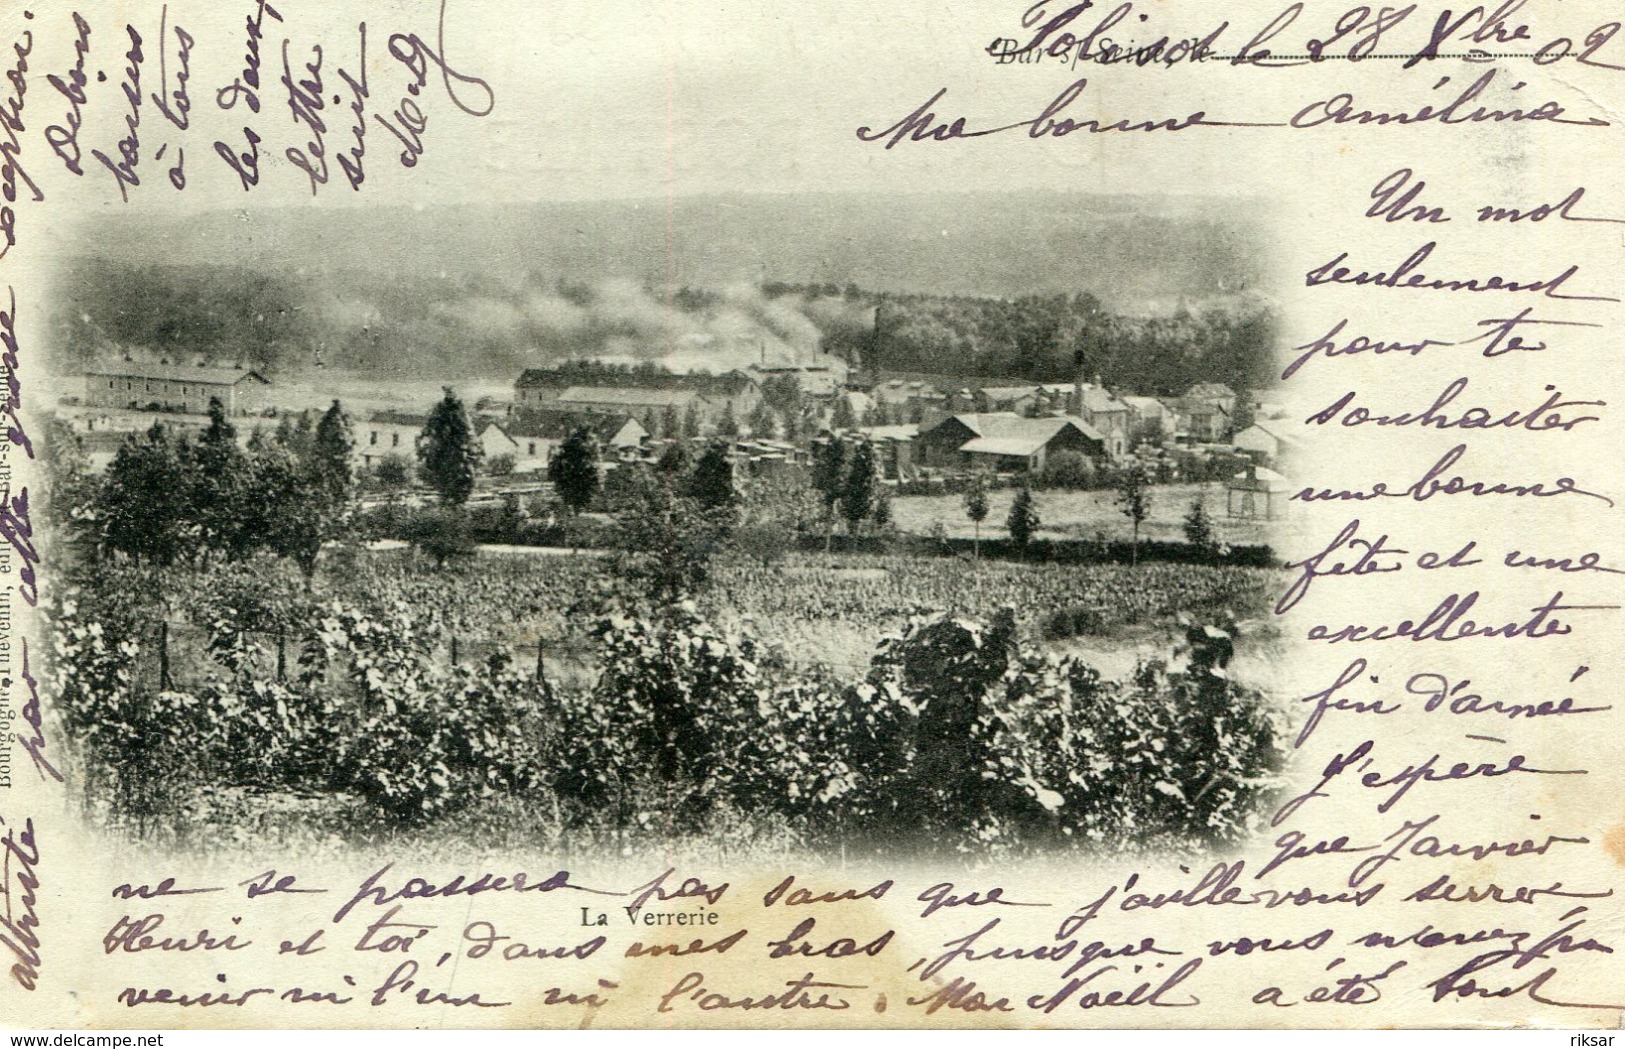 Bar-s/-Seine, le
Polisot le 28 Xbre 02
Ma bonne Amélina
Un mot
seulement
pour te
souhaiter
une bonne
fête et une
excellente
fin d'année
J'espère
que Janvier
ne se passera pas sans que j'aille vous serrer
Henri et toi, dans mes bras, puisque vous n'avez pu
venir ni l'un ni l'autre. Mon Noël a été tout
attristé par cette grosse déception.
De bons
baisers
à tous
les deux,
lettre
suit
La Verrerie
Bourgogne-Thévenin, édit. Bar-sur-Seine
delcampe.net
riksar